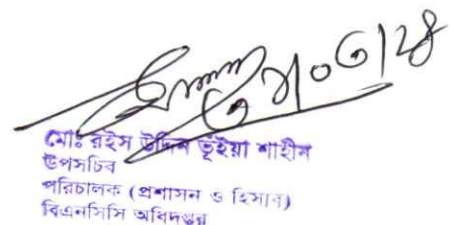 মোঃ রইস উদ্দিন ভূইয়া শাহীন
উপসচিব
পরিচালক (প্রশাসন ও হিসাব)
বিএনসিসি অধিদপ্তর